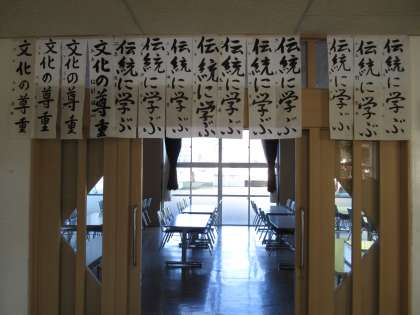 伝統に学ぶ
伝統に学ぶ
伝統に学ぶ
伝統に学ぶ
伝統に学ぶ
伝統に学ぶ
伝統に学ぶ
伝統に学ぶ
伝統に学ぶ
伝統に学ぶ
文化の尊重
文化の尊重
文化の尊重
文化の尊重